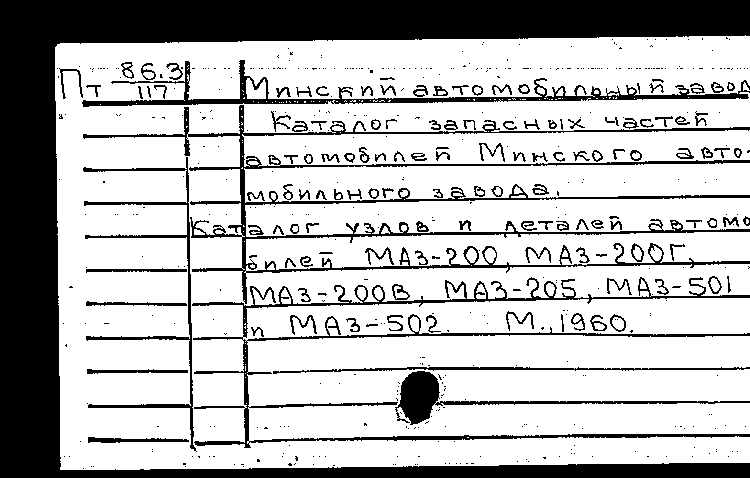 Пт 86.3/117 Минский автомобильный завод
Каталог запасных частей
автомобилей Минского авто-
мобильного завода.
Каталог узлов и деталей автомо
билей МАЗ-200, МАЗ-200Г,
МАЗ-200В, МАЗ-205, МАЗ-501
и МАЗ-502. М., 1960.